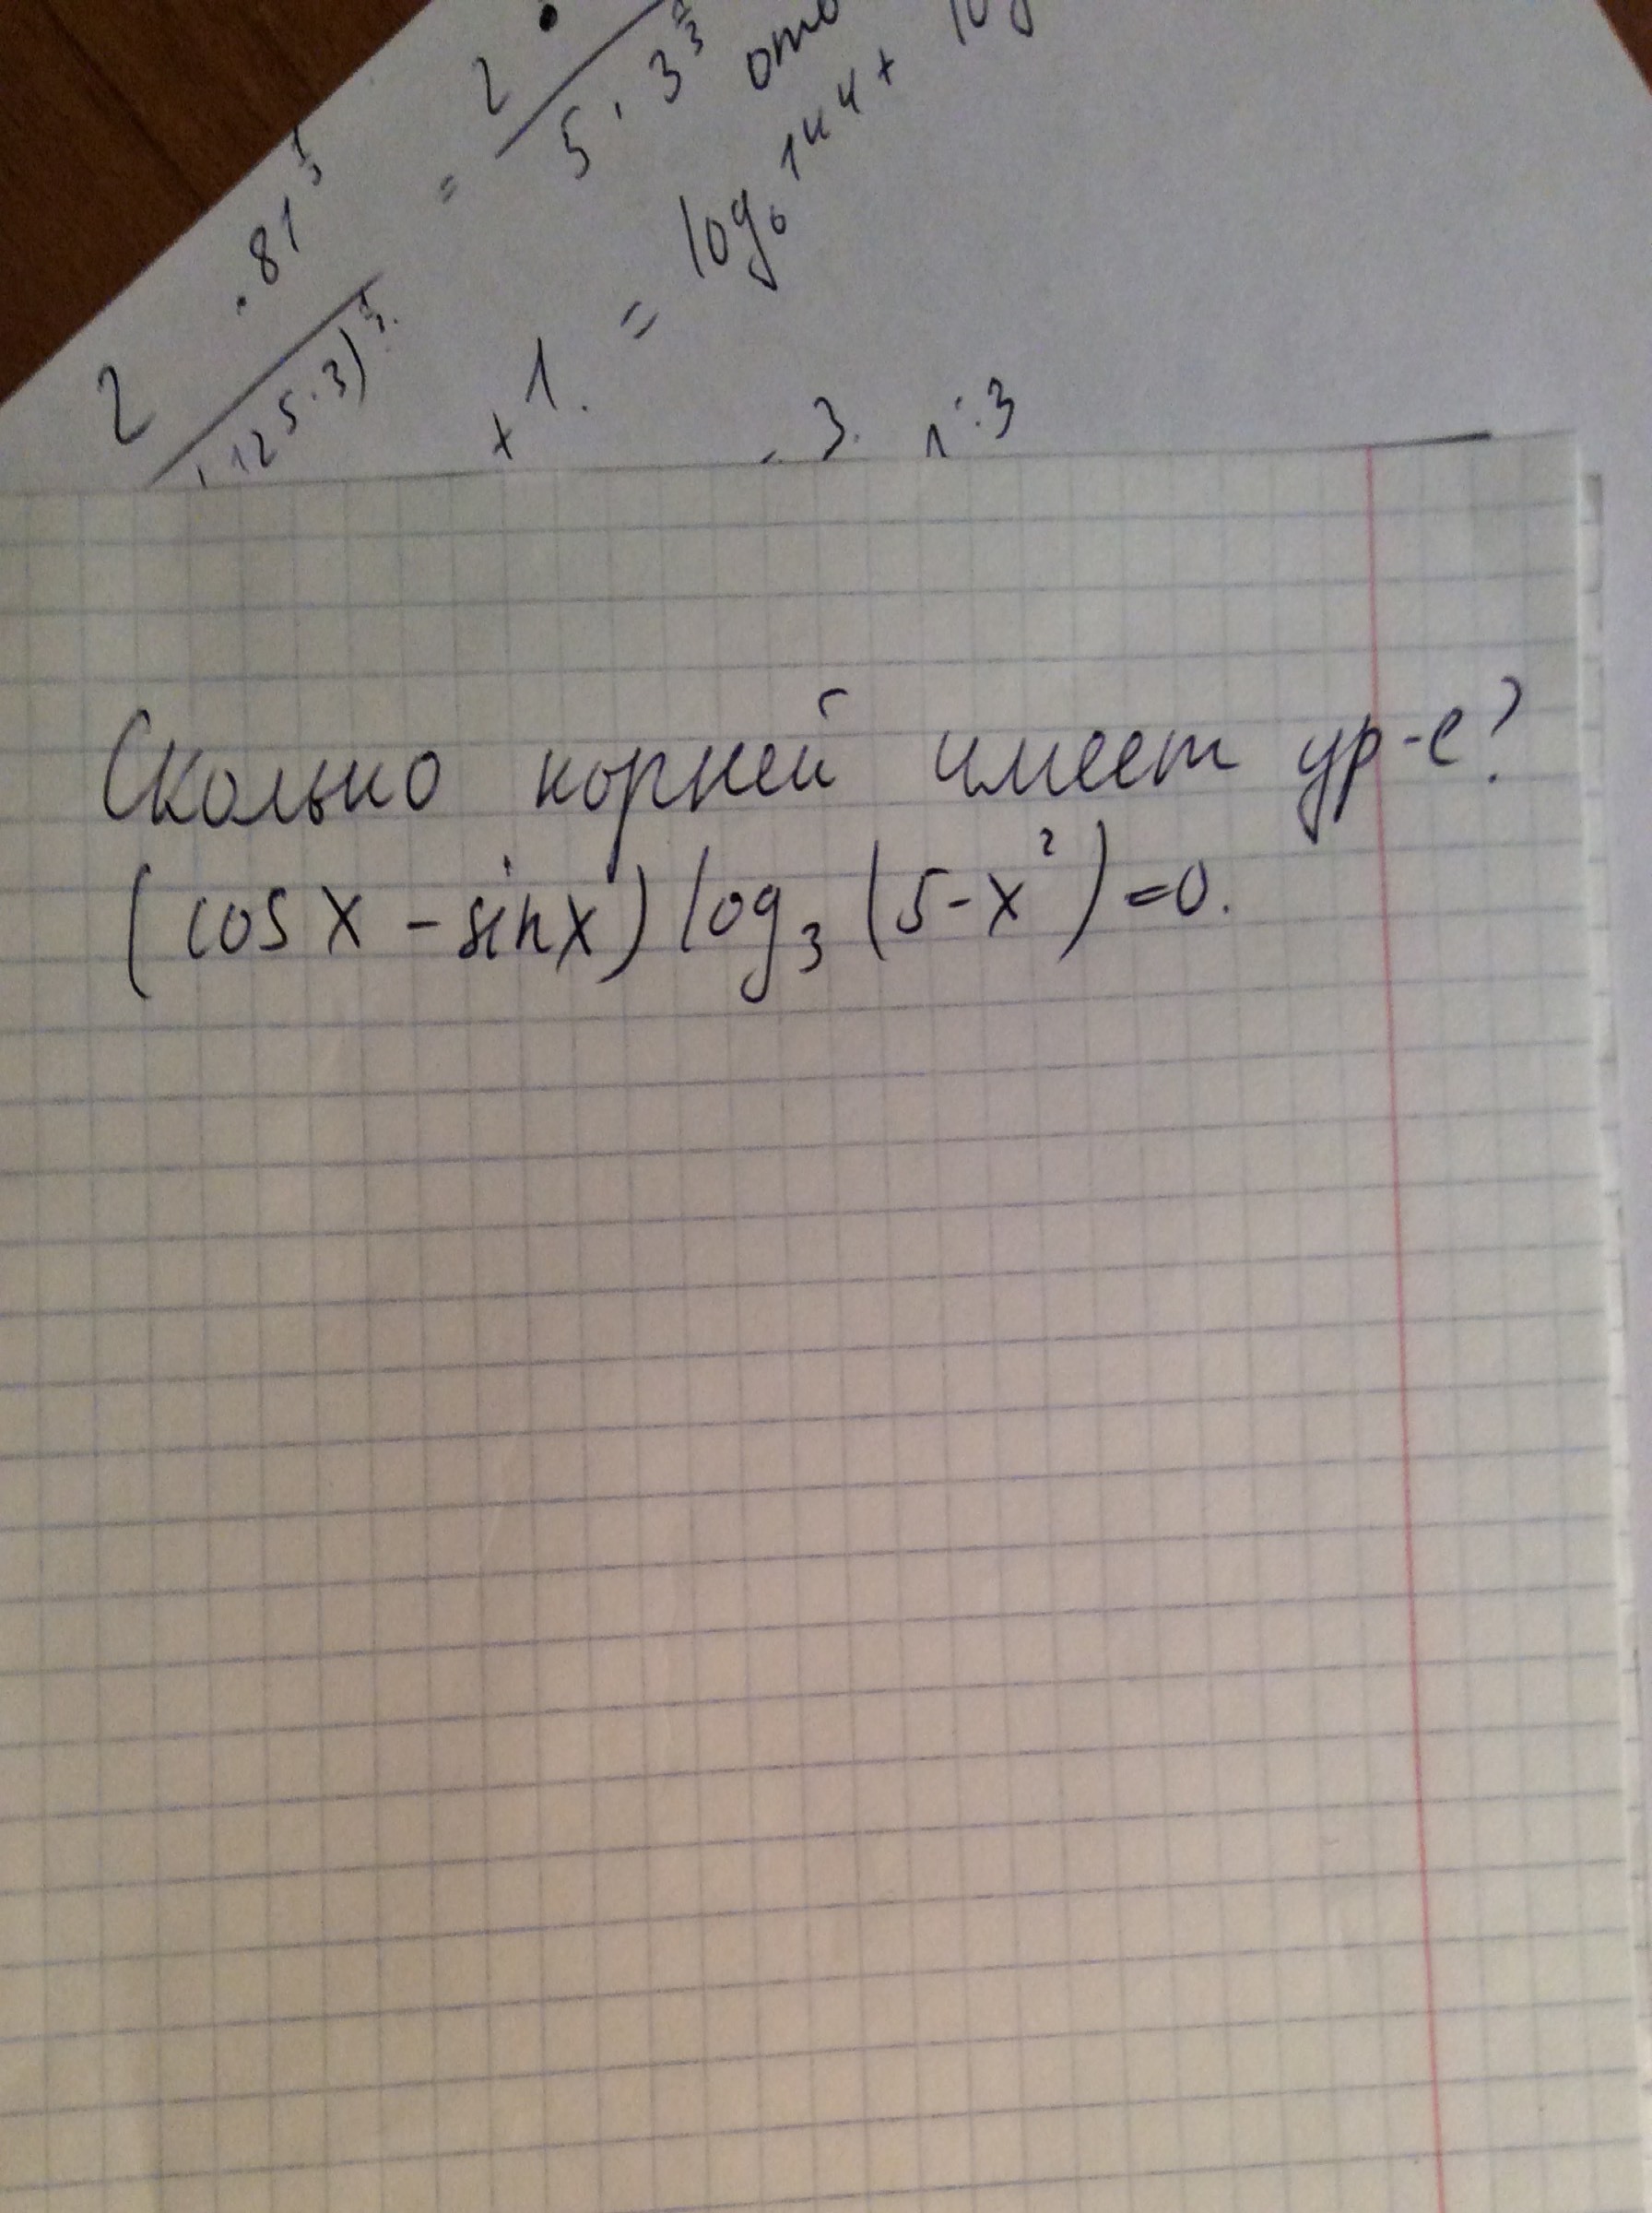 2 · 81^(1/3) = 2
(125·3)^(1/3) 5 · 3
+ 1. = log₆ 144 + log
- 3. 1:3
Сколько корней имеет ур-е?
(cos x - sin x) log₃ (5-x²)=0.